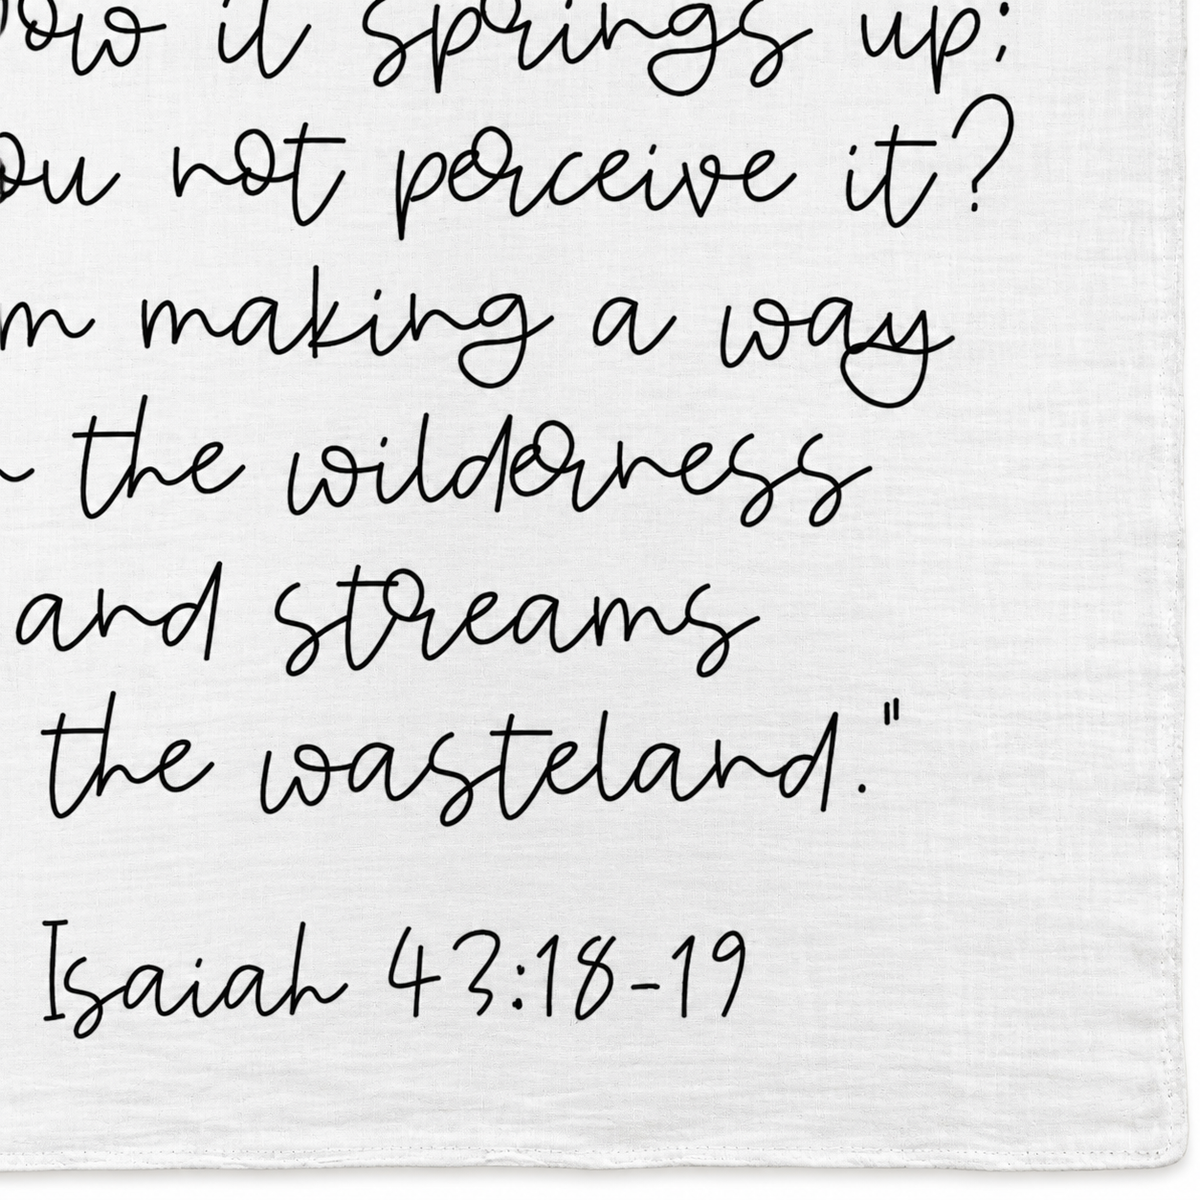 ow it springs up;
ou not perceive it?
m making a way
the wilderness
and streams
the wasteland."
Isaiah 43:18-19